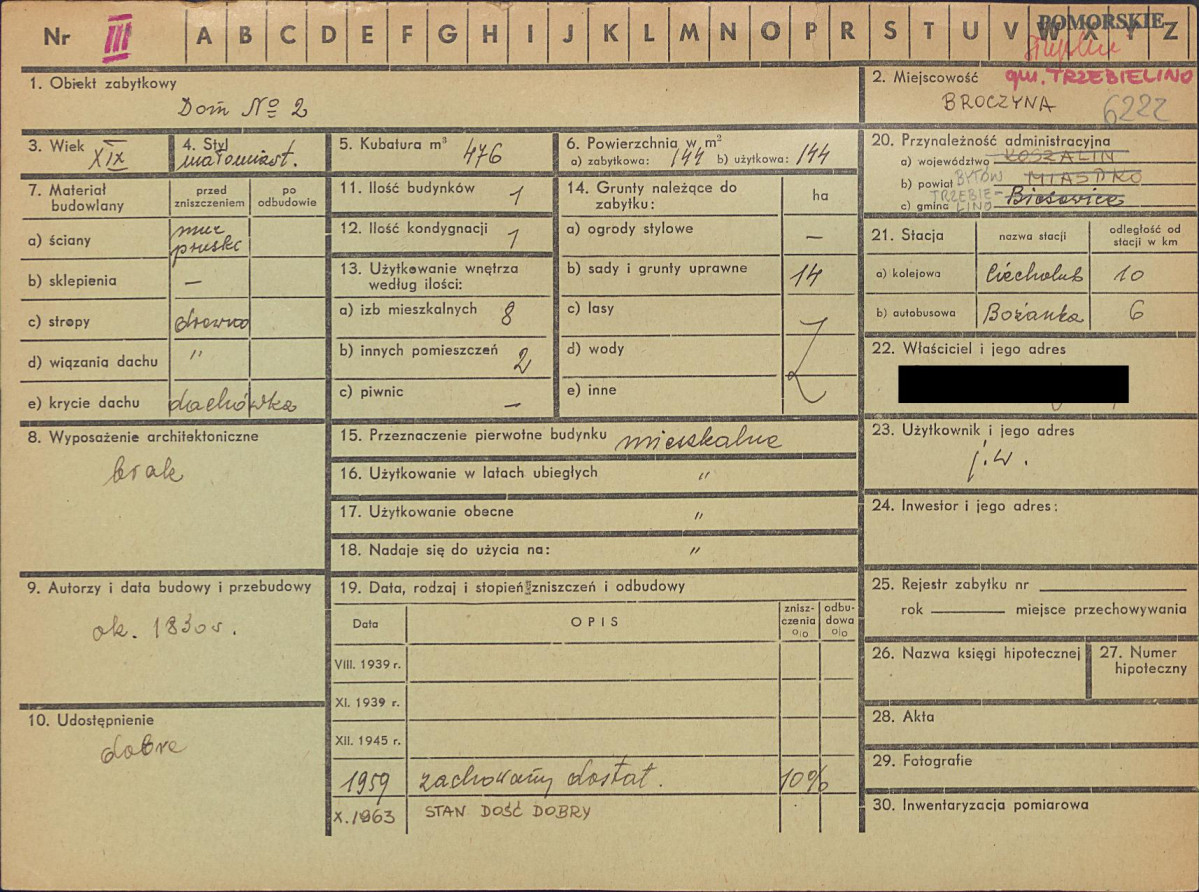 Nr III A B C D E F G H I J K L M N O P R S T U V W X Y Z
POMORSKIE
1. Obiekt zabytkowy
Dom No 2
2. Miejscowość gm. TRZEBIELINO
BROCZYNA 6222
3. Wiek XIX
4. Styl małomiast.
5. Kubatura m³ 476
6. Powierzchnia w m²
a) zabytkowa: 144 b) użytkowa: 144
7. Materiał budowlany
przed zniszczeniem
po odbudowie
a) ściany mur prusk
b) sklepienia —
c) stropy drewno
d) wiązania dachu "
e) krycie dachu dachówka
8. Wyposażenie architektoniczne
brak
9. Autorzy i data budowy i przebudowy
ok. 1830 r.
10. Udostępnienie
dobre
11. Ilość budynków 1
12. Ilość kondygnacji 1
13. Użytkowanie wnętrza
według ilości:
a) izb mieszkalnych 8
b) innych pomieszczeń 2
c) piwnic —
14. Grunty należące do
zabytku:
ha
a) ogrody stylowe —
b) sady i grunty uprawne 14
c) lasy
d) wody
e) inne
15. Przeznaczenie pierwotne budynku mieszkalne
16. Użytkowanie w latach ubiegłych "
17. Użytkowanie obecne "
18. Nadaje się do użycia na: "
19. Data, rodzaj i stopień zniszczeń i odbudowy
Data
OPIS
znisz-
czenia
o/o
odbu-
dowa
o/o
VIII. 1939 r.
XI. 1939 r.
XII. 1945 r.
1959 zachowany dostat. 10%
X.1963 STAN DOŚĆ DOBRY
20. Przynależność administracyjna
a) województwo KOSZALIN
b) powiat BYTÓW MIASTKO
c) gmina TRZEBIE-
LINO
21. Stacja
nazwa stacji
odległość od
stacji w km
a) kolejowa Ciecholub 10
b) autobusowa Bożanka 6
22. Właściciel i jego adres
23. Użytkownik i jego adres
j.w.
24. Inwestor i jego adres:
25. Rejestr zabytku nr
rok miejsce przechowywania
26. Nazwa księgi hipotecznej
27. Numer
hipoteczny
28. Akta
29. Fotografie
30. Inwentaryzacja pomiarowa